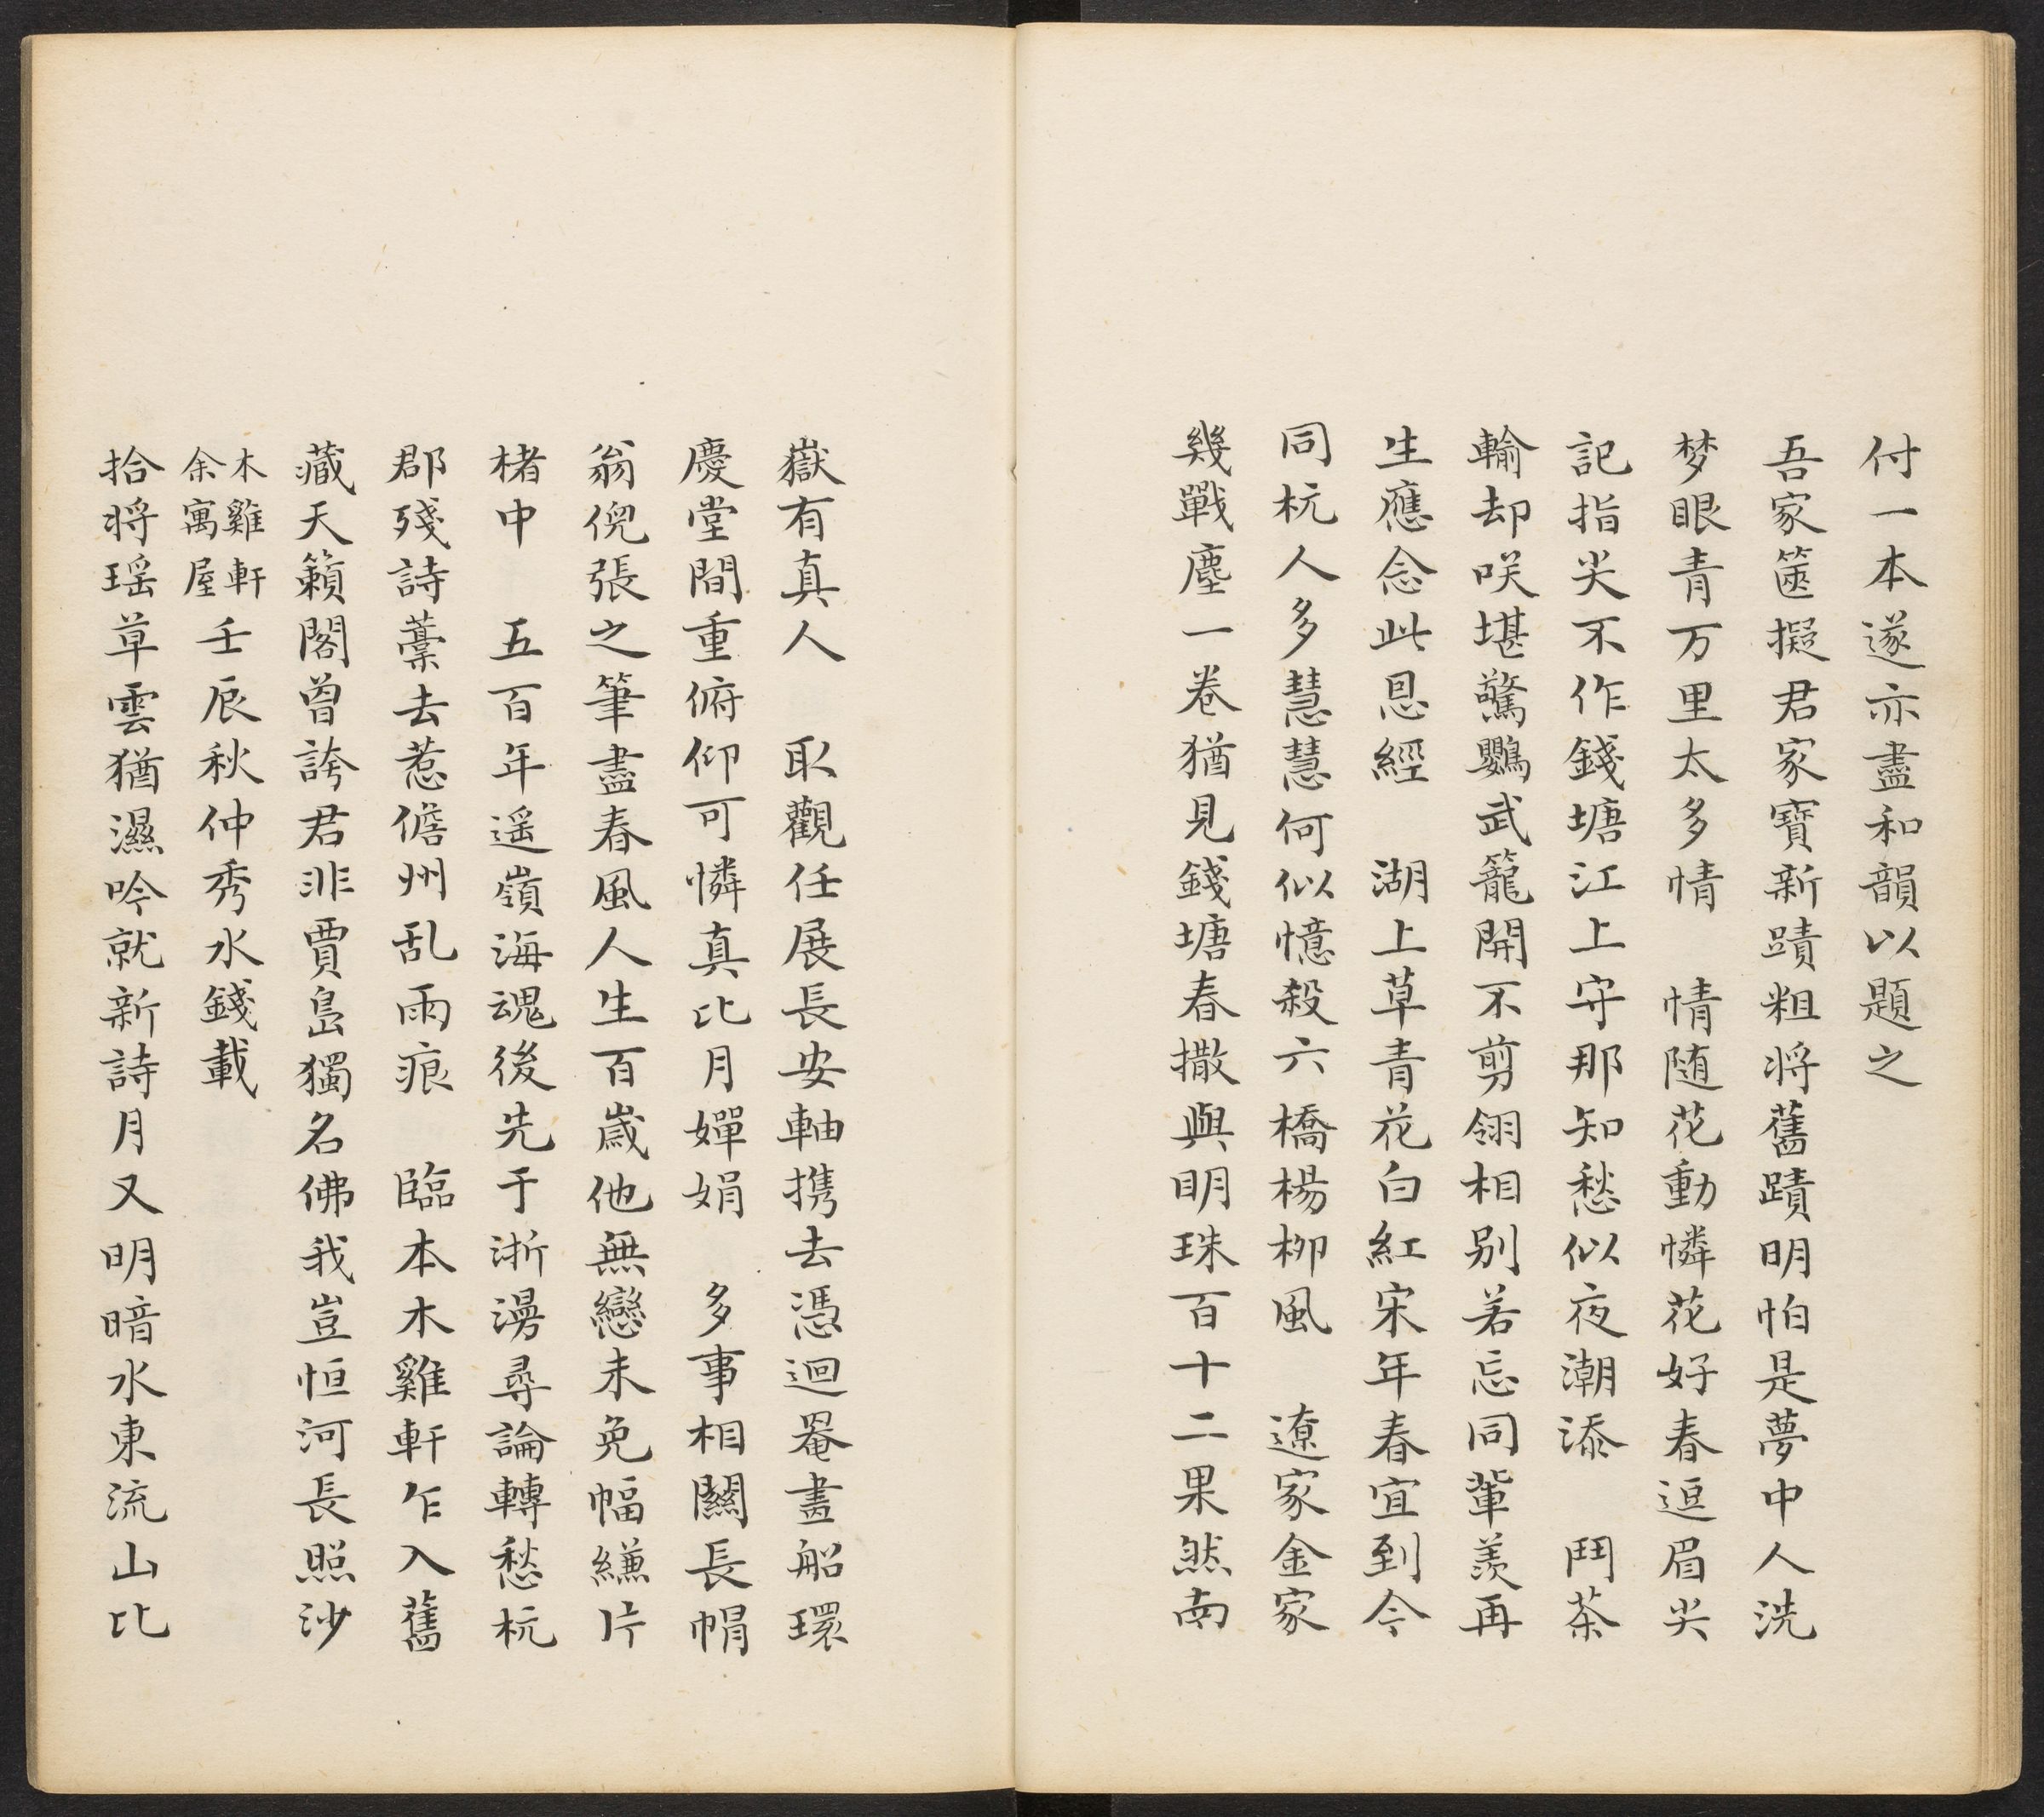 付一本遂亦盡和韻以題之
吾家篋擬君家寶新蹟粗将舊蹟明怕是夢中人洗
梦眼青万里太多情　情随花動憐花好春逗眉尖
記指尖不作錢塘江上守那知愁似夜潮添　鬥茶
輸却咲堪驚鸚武籠開不剪翎相别若忘同輩羨再
生應念此恩經　湖上草青花白紅宋年春宜到今
同杭人多慧慧何似憶殺六橋楊栁風　遼家金家
幾戰塵一卷猶見錢塘春撒與明珠百十二果然南
嶽有真人　耴觀任展長安軸携去憑迴罨畫船環
慶堂間重俯仰可憐真比月嬋娟　多事相關長帽
翁倪張之筆盡春風人生百歲他無戀未免幅縑片
楮中　五百年遥嶺海魂後先于浙漫尋論轉愁杭
郡殘詩藳去惹儋州乱雨痕　臨本木雞軒乍入舊
藏天籟閣曾誇君非賈島獨名佛我豈恒河長照沙
木雞軒
余寓屋
壬辰秋仲秀水錢載
拾将瑶草雲猶濕吟就新詩月又明暗水東流山比